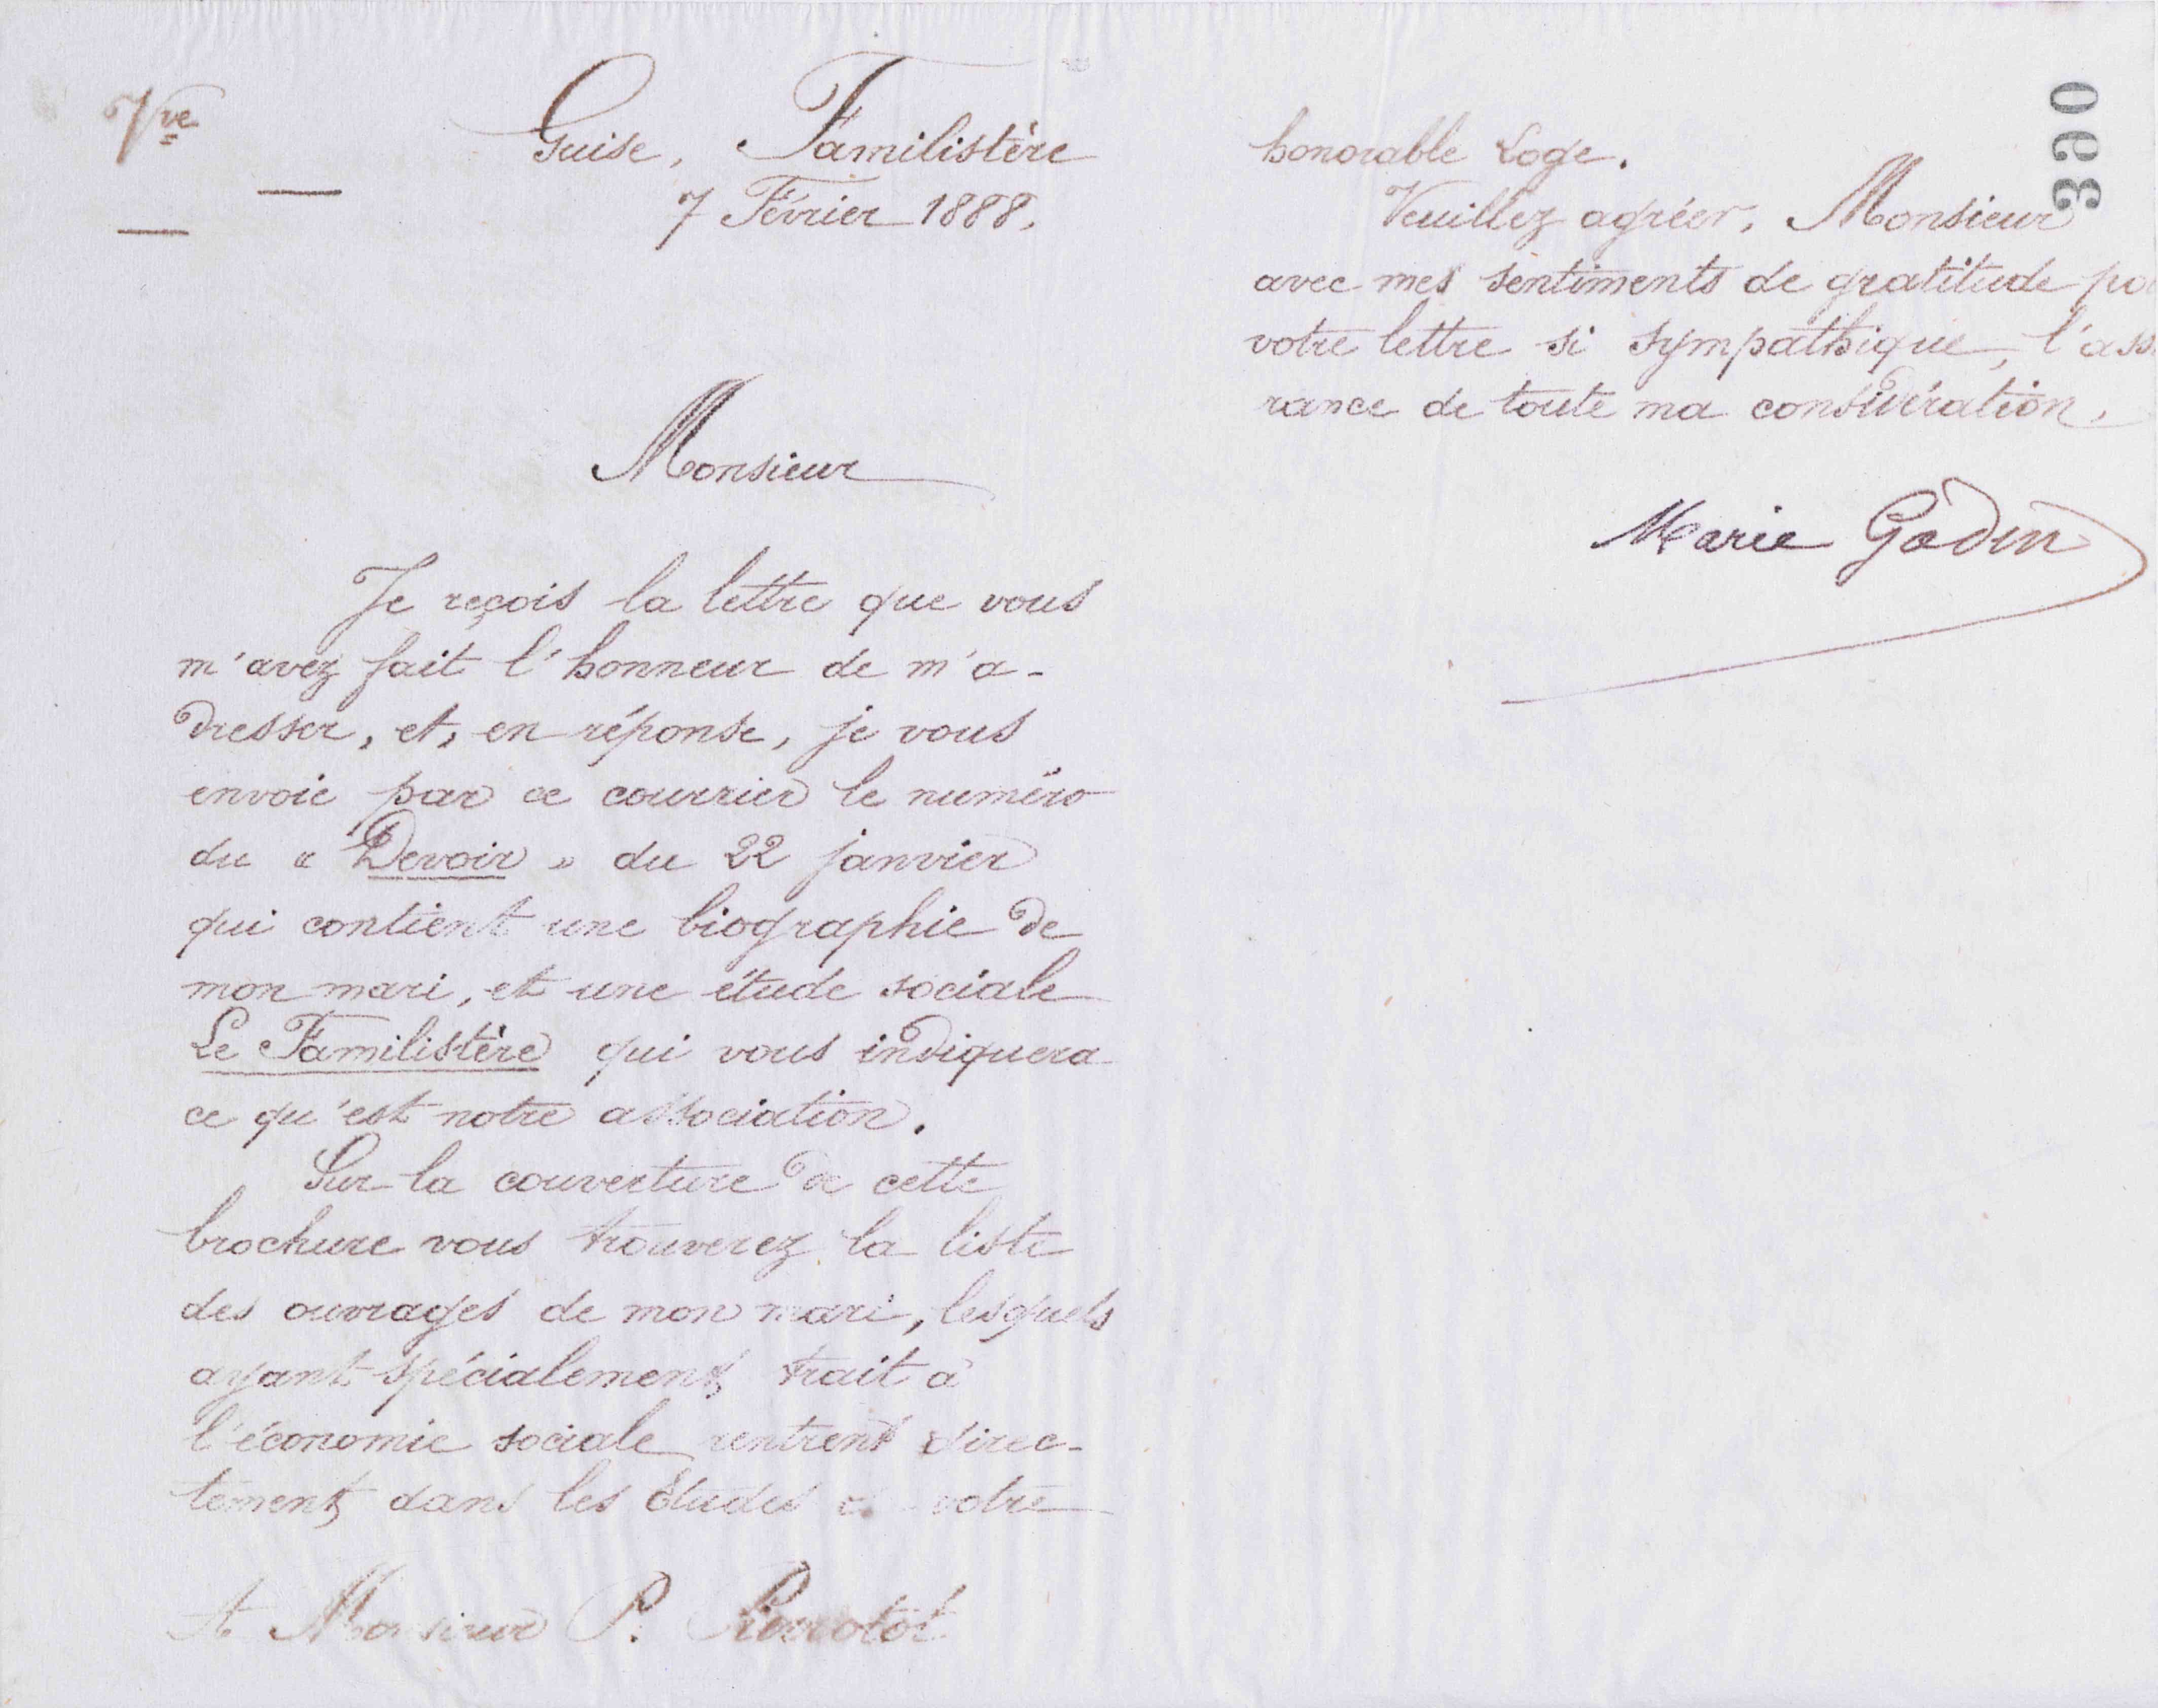 Vve
Guise, Familistère
7 Février 1888.
Monsieur
Je reçois la lettre que vous
m'avez fait l'honneur de m'a-
dresser, et, en réponse, je vous
envoie par ce courrier le numéro
du « Devoir » du 22 janvier
qui contient une biographie de
mon mari, et une étude sociale
Le Familistère qui vous indiquera
ce qu'est notre association.
Sur la couverture de cette
brochure vous trouverez la liste
des ouvrages de mon mari, lesquels
ayant spécialement trait à
l'économie sociale rentrent direc-
tement dans les études votre
A Monsieur P.
390
honorable Loge.
Veuillez agréer, Monsieur
avec mes sentiments de gratitude po
votre lettre si sympathique, l'ass
rance de toute ma considération,
Marie Godin